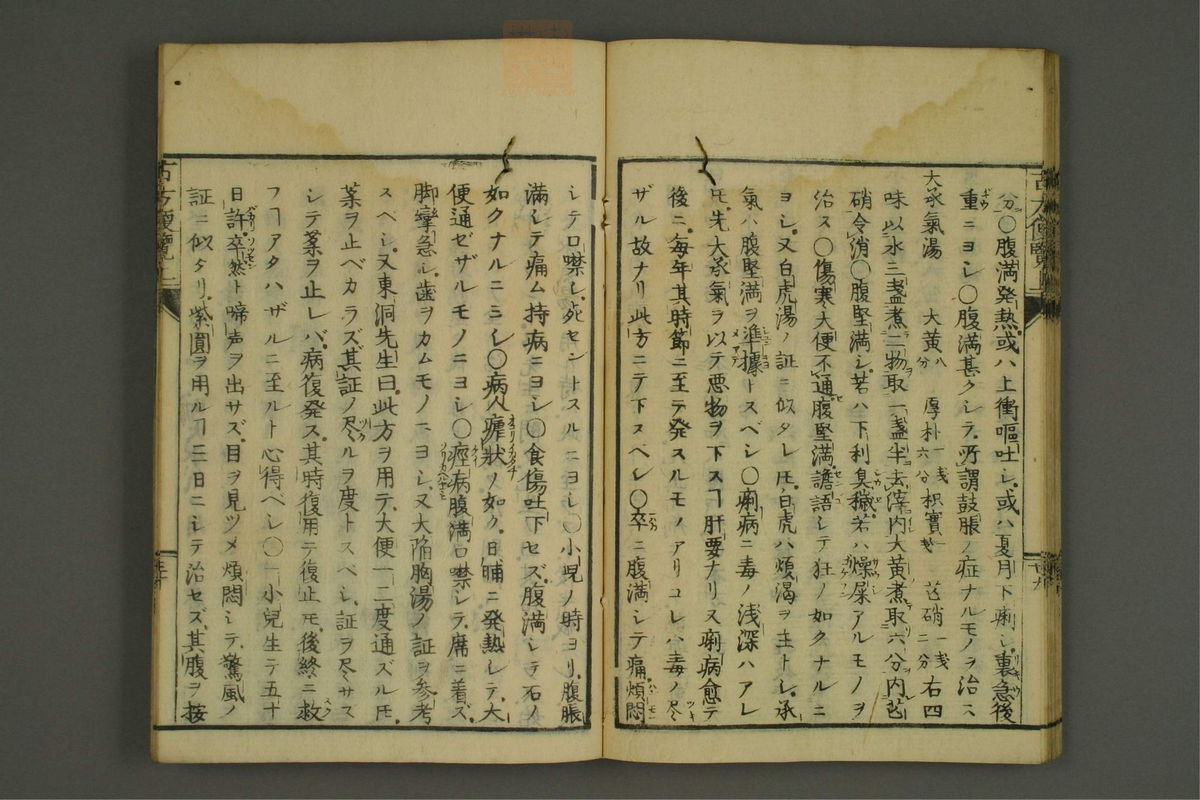 分〇腹満発熱或ハ上衝嘔吐シ或ハ夏月下痢シ裏急後
重ニヨシ〇腹満甚クシテ所謂鼓脹ノ症ナルモノヲ治ス
大承氣湯 大黄八分 厚朴一戔六分 枳實一戔 芒硝一戔二分 右四
味以水三盞煮二物取一盞半去滓内大黄煮取六分内芒
硝令消〇腹堅満シ若ハ下利臭穢若ハ燥屎アルモノヲ
治ス〇傷寒大便不通腹堅満譫語シテ狂ノ如クナルニ
ヨシ又白虎湯ノ証ニ似タレ𪜈白虎ハ煩渇ヲ主トシ承
氣ハ腹堅満ヲ準據トスベシ〇痢病ニ毒ノ浅深ハアレ
𪜈先大承氣ヲ以テ悪物ヲ下スヿ肝要ナリ又痢病愈テ
後ニ毎年其時節ニ至テ発スルモノアリコレハ毒ノ尽
ザル故ナリ此方ニテ下スベシ〇卒ニ腹満シテ痛煩悶
シテ口噤シ死セントスルニヨシ〇小児ノ時ヨリ腹脹
満シテ痛ム持病ニヨシ〇食傷吐下セズ腹満シテ石ノ
如クナルニヨシ〇病人瘧状ノ如ク日晡ニ発熱シテ大
便通ゼザルモノニヨシ〇痙病腹満口噤シテ席ニ着ズ
脚攣急シ歯ヲカムモノニヨシ又大陥胸湯ノ証ヲ参考
スベシ又東洞先生曰此方ヲ用テ大便一二度通ズル𪜈
薬ヲ止ベカラズ其証ノ尽ルヲ度トスベシ証ヲ尽サス
シテ薬ヲ止レバ病復発ス其時復用テ復止𪜈後終ニ救
フヿアタハザルニ至ルト心得ベシ〇一小児生テ五十
日許卒然ト啼声ヲ出サズ目ヲ見ツメ煩悶シテ驚風ノ
証ニ似タリ紫圓ヲ用ルヿ三日ニシテ治セズ其腹ヲ按